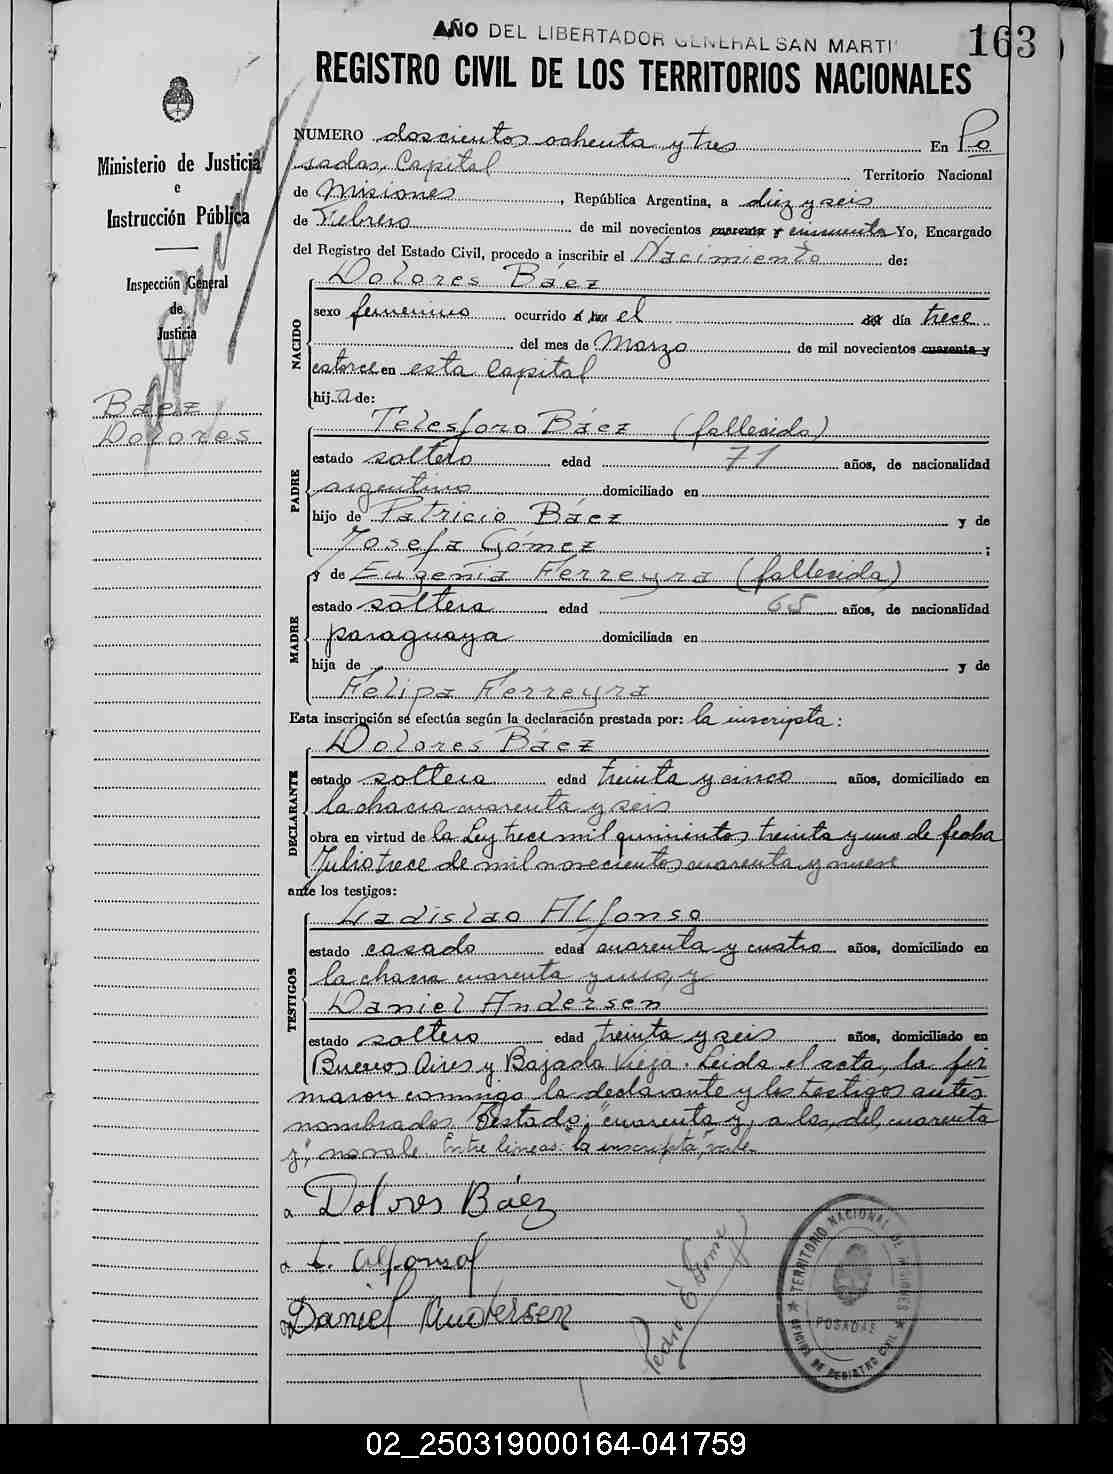 AÑO DEL LIBERTADOR GENERAL SAN MARTI
163
REGISTRO CIVIL DE LOS TERRITORIOS NACIONALES
Ministerio de Justicia
e
Instrucción Pública
Inspección General
de
Justicia
Báez
Dolores
NUMERO doscientos ochenta y tres En Po
sadas, Capital Territorio Nacional
de Misiones, República Argentina, a diez y seis
de Febrero de mil novecientos cuarenta y cincuenta Yo, Encargado
del Registro del Estado Civil, procedo a inscribir el Nacimiento de:
NACIDO
Dolores Báez
sexo femenino ocurrido a las el del día trece
del mes de Marzo de mil novecientos cuarenta y
catorce en esta Capital
hij a de:
PADRE
Telesforo Báez (fallecido)
estado soltero edad 71 años, de nacionalidad
argentino domiciliado en
hijo de Patricio Báez y de
Josefa Gómez ;
MADRE
y de Eugenia Ferreyra (fallecida)
estado soltera edad 65 años, de nacionalidad
paraguaya domiciliada en
hija de y de
Felipa Ferreyra
Esta inscripción se efectúa según la declaración prestada por: la inscripta:
DECLARANTE
Dolores Báez
estado soltera edad treinta y cinco años, domiciliado en
la chacra cuarenta y seis
obra en virtud de la Ley trece mil quinientos treinta y uno de fecha
Julio trece de mil novecientos cuarenta y nueve
ante los testigos:
TESTIGOS
Ladislao Alfonso
estado casado edad cuarenta y cuatro años, domiciliado en
la chacra cuarenta y uno, y
Daniel Andersen
estado soltero edad treinta y seis años, domiciliado en
Buenos Aires y Bajada Vieja. Leida el acta, la fir
maron conmigo la declarante y los testigos antes
nombrados. Testado: "cuarenta y, a las, del, cuarenta
y", no vale. Entre lineas: "la inscripta", vale.
Dolores Báez
L. Alfonso
Daniel Andersen
Pedro
TERRITORIO NACIONAL DE MISIONES
POSADAS
OFICINA DE REGISTRO CIVIL
02_250319000164-041759